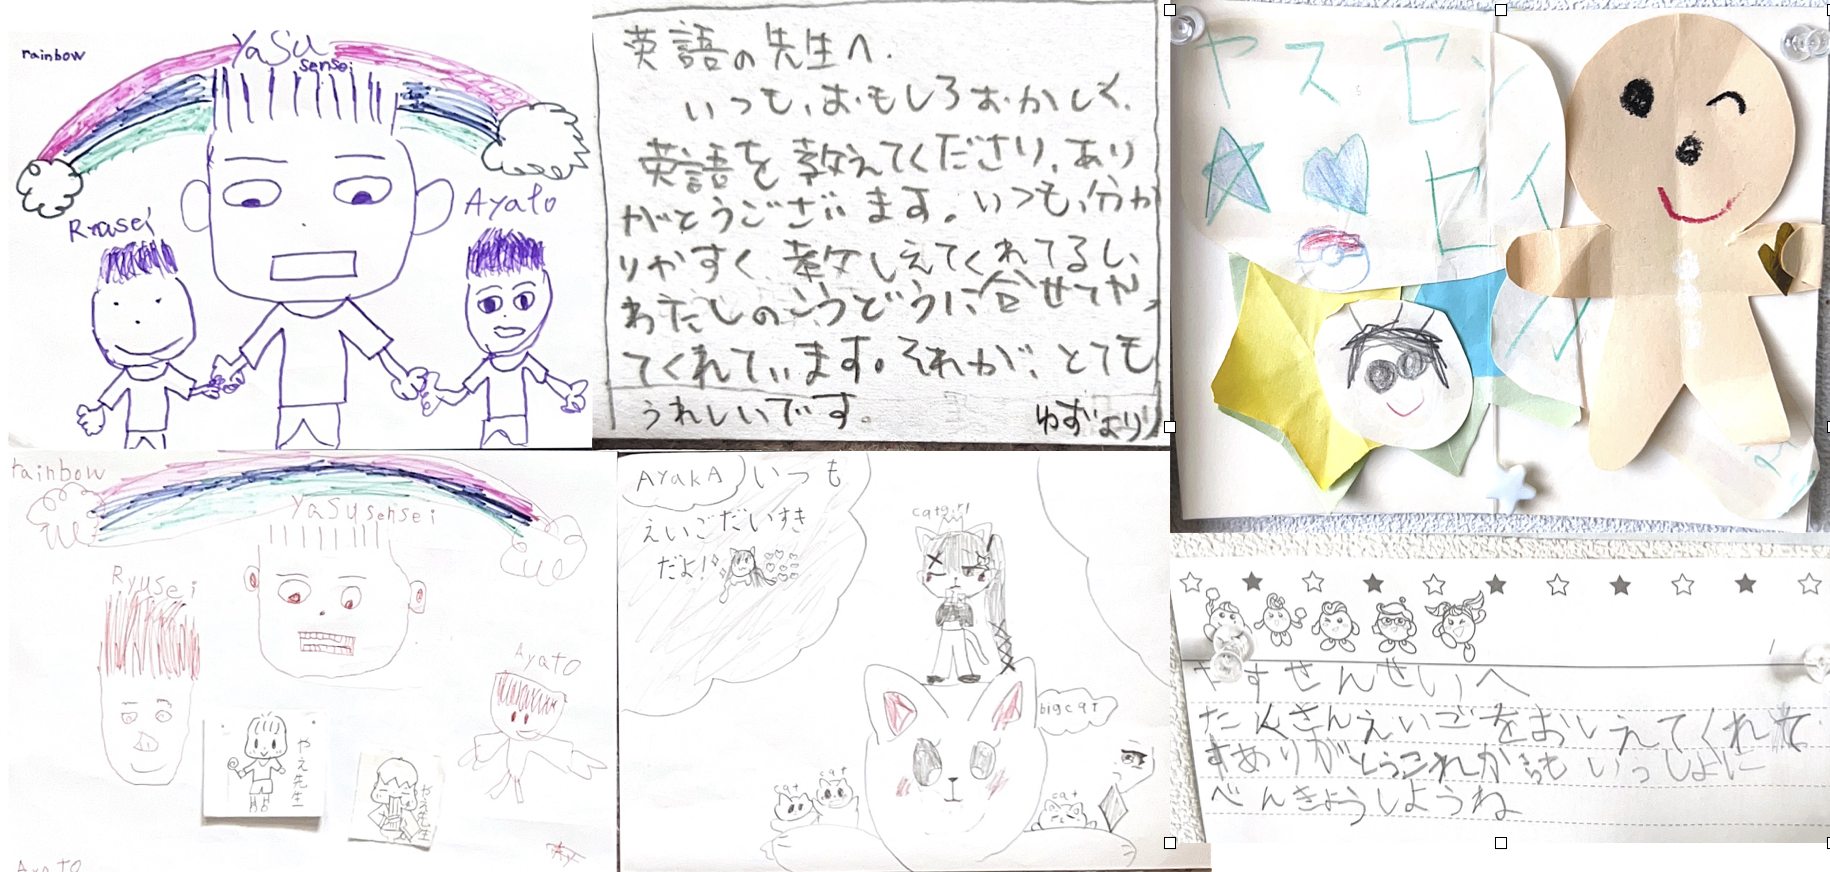 rainbow
Yasu
sensei
Ryusei
Ayato
英語の先生へ.
いつも、おもしろおかしく、
英語を教えてくださり、あり
がとうございます。いつも、分か
りやすく、教しえてくれてるし、
わたしのこうどうに合せてやっ
てくれています。それが、とても
うれしいです。
ゆずより
ヤスセン
セイ
rainbow
Yasusensei
Ryusei
Ayato
やえ先生
やえ先生
Ayato
AYakA
いつも
えいごだいすき
だよ!
catgirl
bigcat
cat
cat
cat
やすせんせいへ
たくさんえいごをおしえてくれて
すありがとうこれからもいっしょに
べんきょうしようね